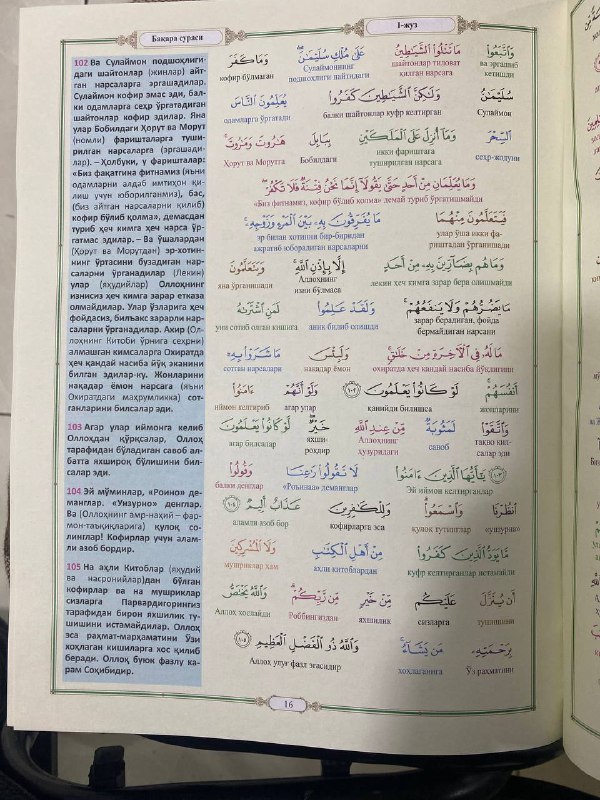 Бақара сураси
1-жуз
102 Ва Сулаймон подшоҳлиги-
даги шайтонлар (жинлар) айт-
ган нарсаларга эргашадилар.
Сулаймон кофир эмас эди, бал-
ки одамларга сеҳр ўргатадиган
шайтонлар кофир эдилар. Яна
улар Бобилдаги Ҳорут ва Морут
(номли) фаришталарга туши-
рилган нарсаларга (эргашади-
лар). – Ҳолбуки, у фаришталар:
«Биз фақатгина фитнамиз (яъни
одамларни алдаб имтиҳон қи-
лиш учун юборилганмиз), бас,
(биз айтган нарсаларни қилиб)
кофир бўлиб қолма», демасдан
туриб ҳеч кимга ҳеч нарса ўр-
гатмас эдилар. – Ва ўшалардан
(Ҳорут ва Морутдан) эр-хотин-
нинг ўртасини бузадиган нар-
саларни ўрганадилар (Лекин)
улар (яҳудийлар) Оллоҳнинг
изнисиз ҳеч кимга зарар етказа
олмайдилар. Улар ўзларига ҳеч
фойдасиз, билъакс зарарли нар-
саларни ўрганадилар. Ахир (Ол-
лоҳнинг Китоби ўрнига сеҳрни)
алмашган кимсаларга Охиратда
ҳеч қандай насиба йўқ эканини
билган эдилар-ку. Жонларини
нақадар ёмон нарсага (яъни
Охиратдаги маҳрумликка) сот-
ганларини билсалар эди.
103 Агар улар иймонга келиб
Оллоҳдан қўрқсалар, Оллоҳ
тарафидан бўладиган савоб ал-
батта яхшироқ бўлишини бил-
салар эди.
104 Эй мўминлар, «Роино» де-
манглар. «Унзурно» денглар.
Ва (Оллоҳнинг амр-наҳий – фар-
мон-таъқиқларига) қулоқ со-
линглар! Кофирлар учун алам-
ли азоб бордир.
105 На аҳли Китоблар (яҳудий
ва насронийлар)дан бўлган
кофирлар ва на мушриклар
сизларга Парвардигорингиз
тарафидан бирон яхшилик ту-
шишини истамайдилар. Оллоҳ
эса раҳмат-марҳаматини Ўзи
хоҳлаган кишиларга хос қилиб
беради. Оллоҳ буюк фазлу ка-
рам Соҳибидир.
وَاتَّبَعُوا مَا تَتْلُوا الشَّيَاطِينُ عَلَىٰ مُلْكِ سُلَيْمَٰنَ ۖ وَمَا كَفَرَ
ва эргашиб шайтонлар тиловат Сулаймоннинг кофир бўлмаган
кетишди қилган нарсага подшоҳлиги пайтидаги
سُلَيْمَٰنُ وَلَٰكِنَّ الشَّيَاطِينَ كَفَرُوا يُعَلِّمُونَ النَّاسَ
Сулаймон балки шайтонлар куфр келтирган одамларга ўргатади
السِّحْرَ وَمَا أُنزِلَ عَلَى الْمَلَكَيْنِ بِبَابِلَ هَٰرُوتَ وَمَٰرُوتَ ۚ
сеҳр-жодуни икки фаришта Бобилдаги Ҳорут ва Морутга
туширилган нарсага
وَمَا يُعَلِّمَانِ مِنْ أَحَدٍ حَتَّىٰ يَقُولَا إِنَّمَا نَحْنُ فِتْنَةٌ فَلَا تَكْفُرْ ۖ
«Биз фитнамиз, кофир бўлиб қолма» демай туриб ўргатишмайди
فَيَتَعَلَّمُونَ مِنْهُمَا مَا يُفَرِّقُونَ بِهِ بَيْنَ الْمَرْءِ وَزَوْجِهِ ۚ
улар ўша икки фа- эр билан хотинни бир-биридан
риштадан ўрганишади ажратиб юборадиган нарсаларни
وَمَا هُم بِضَارِّينَ بِهِ مِنْ أَحَدٍ إِلَّا بِإِذْنِ اللَّهِ ۚ وَيَتَعَلَّمُونَ
лекин ҳеч кимга зарар бера олишмайди Аллоҳнинг яна ўрганишади
изни бўлмаса
مَا يَضُرُّهُمْ وَلَا يَنفَعُهُمْ ۚ وَلَقَدْ عَلِمُوا لَمَنِ اشْتَرَاهُ
зарар берадиган, фойда аниқ билиб олишди уни сотиб олган кишига
бермайдиган нарсани
مَا لَهُ فِي الْآخِرَةِ مِنْ خَلَٰقٍ ۚ وَلَبِئْسَ مَا شَرَوْا بِهِ
охиратда ҳеч қандай насиба йўқлигини нақадар ёмон сотган нарсалари
أَنفُسَهُمْ ۚ لَوْ كَانُوا يَعْلَمُونَ ۝١٠٢ وَلَوْ أَنَّهُمْ ءَامَنُوا
жонларини қанийди билишса агар улар иймон келтириб
وَاتَّقَوْا لَمَثُوبَةٌ مِّنْ عِندِ اللَّهِ خَيْرٌ ۖ لَّوْ كَانُوا يَعْلَمُونَ
тақво қил- савоб Аллоҳнинг яхши- агар билсалар
салар эди ҳузуридаги роқдир
۝١٠٣ يَٰأَيُّهَا الَّذِينَ ءَامَنُوا لَا تَقُولُوا رَٰعِنَا وَقُولُوا
Эй иймон келтирганлар «Роъинаа» деманглар балки денглар
انظُرْنَا وَاسْمَعُوا ۗ وَلِلْكَٰفِرِينَ عَذَابٌ أَلِيمٌ ۝١٠٤
«унзурна» қулоқ тутинглар кофирларга эса аламли азоб бор
مَّا يَوَدُّ الَّذِينَ كَفَرُوا مِنْ أَهْلِ الْكِتَٰبِ وَلَا الْمُشْرِكِينَ
куфр келтирганлар истамайди аҳли китоблардан мушриклар ҳам
أَن يُنَزَّلَ عَلَيْكُم مِّنْ خَيْرٍ مِّن رَّبِّكُمْ ۗ وَاللَّهُ يَخْتَصُّ
тушишини сизларга яхшилик Роббингиздан Аллоҳ хослайди
بِرَحْمَتِهِ مَن يَشَاءُ ۚ وَاللَّهُ ذُو الْفَضْلِ الْعَظِيمِ ۝١٠٥
Ўз раҳматини хоҳлаганига Аллоҳ улуғ фазл эгасидир
16